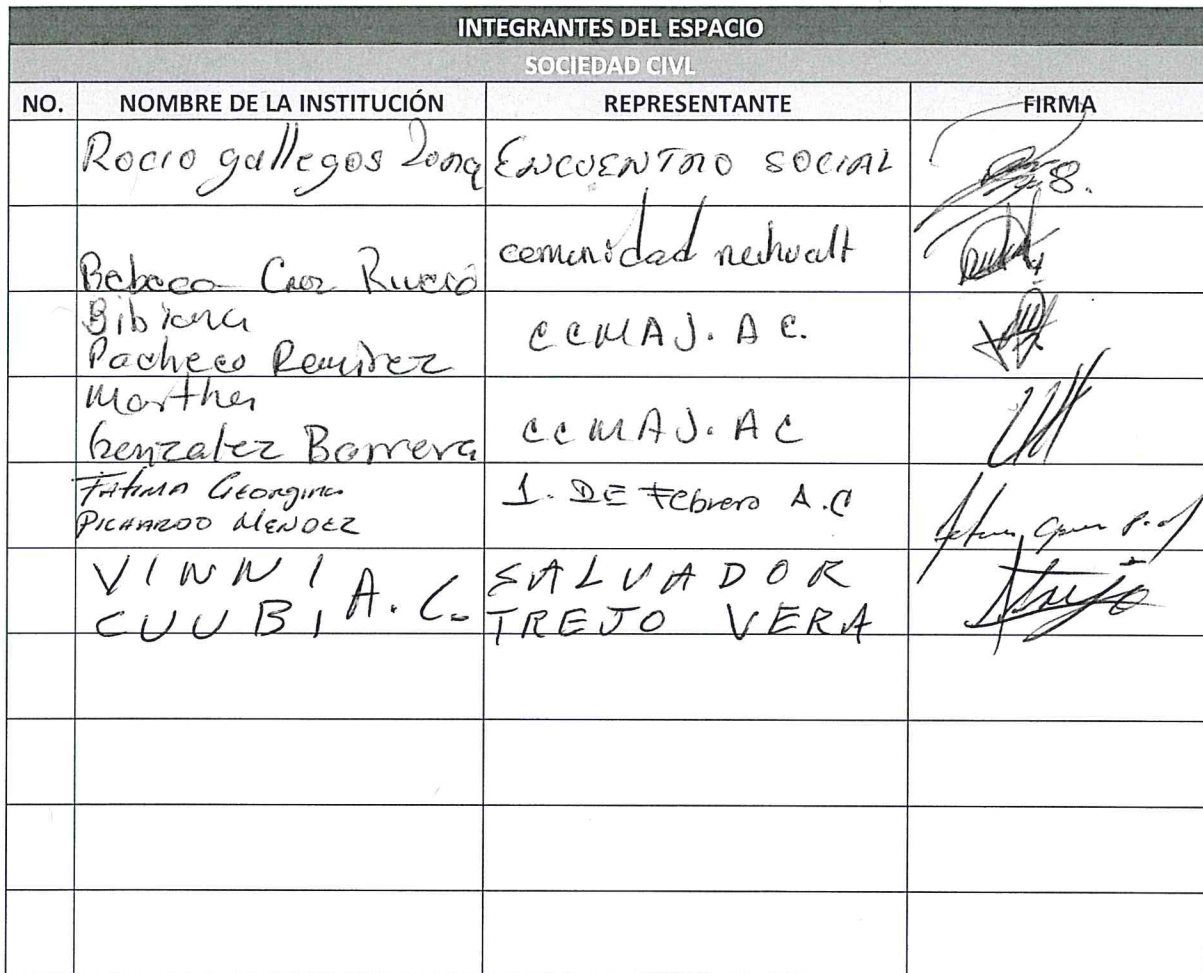 INTEGRANTES DEL ESPACIO
SOCIEDAD CIVL
NO. NOMBRE DE LA INSTITUCIÓN REPRESENTANTE FIRMA
Rocio gallegos ENCUENTRO SOCIAL
comunidad nehualt
Bebeca Cruz
Bibiana
Pacheco Ramirez CCMAJ. A C.
Martha
Gonzalez Barrera CCMAJ. A C
FATIMA GEORGINA
PICHARDO MENDEZ 1. DE Febrero A.C
VINNI SALVADOR
CUUBI A.C. TREJO VERA